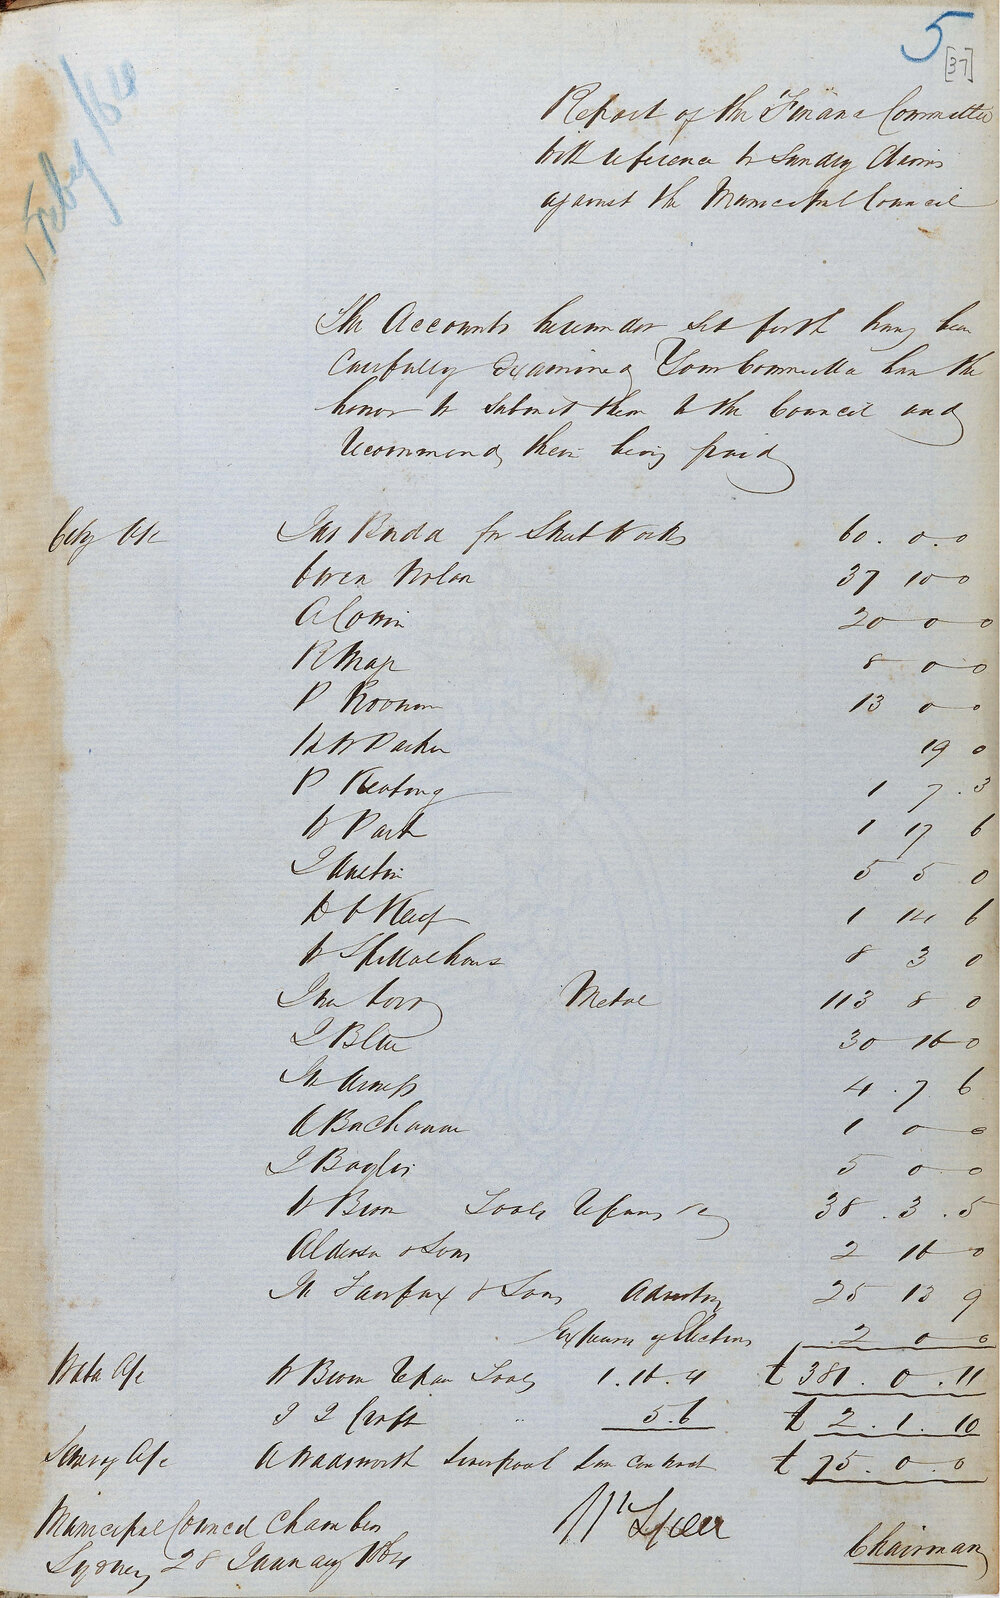 5
[37]
1 Feby /64
Report of the Finance Committee
with reference to Sundry Claims
against the Municipal Council
The Accounts hereunder set forth having been
Carefully Examined Your Committee has the
honor to submit them to the Council and
recommend their being paid
City A/c Jas Budd for Street Works 60 . 0 . 0
Owen Nolan 37 10 0
A Cowin 20 0 0
R 8 0 0
P Noonan 13 0 0
H W Parker 19 0
P Keating 1 7 . 3
W Park 1 17 6
J Austin 5 5 0
D O Keefe 1 14 6
W Spittalhouse 8 3 0
Metal 113 8 0
J Blue 30 16 0
4 . 7 6
A Buchanan 1 0 0
J Baylis 5 0 0
W Tools Repairs &c 38 . 3 . 5
Alderson & Sons 2 16 0
Jn Fairfax & Sons 25 13 9
Expenses of Elections 2 0 0
£ 381 . 0 . 11
Water A/c W Tools 1 . 16 . 4
J J Croft " 5 . 6 £ 2 . 1 . 10
Sewerage A/c A Wadsworth Liverpool contract £ 75 . 0 . 0
Municipal Council Chambers
Sydney 28 January 1864
Speer
Chairman